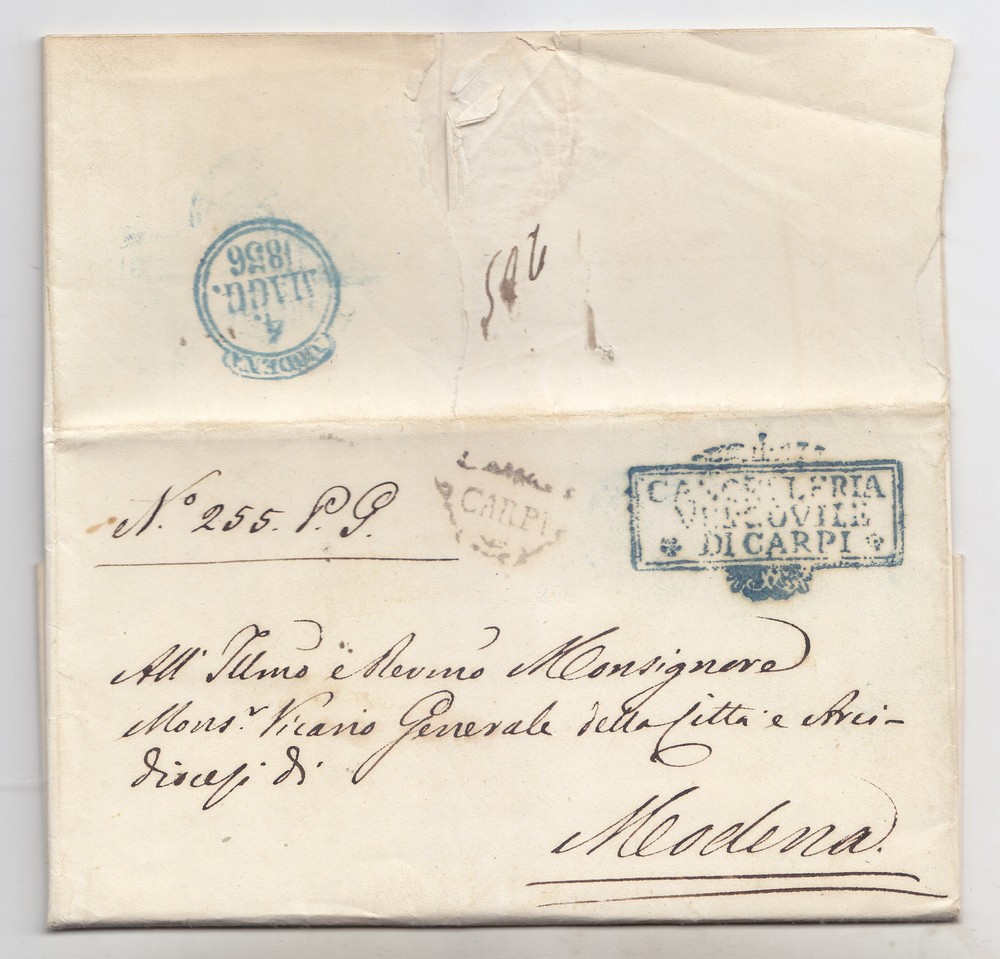 4.
MAGG.
1856
MODENA
N.º 255. P. G.
CARPI
CANCELLERIA
VESCOVILE
DI CARPI
All' Illmo e Revmo Monsignore
Mons.r Vicario Generale della Città e Arci-
diocesi di
Modena.